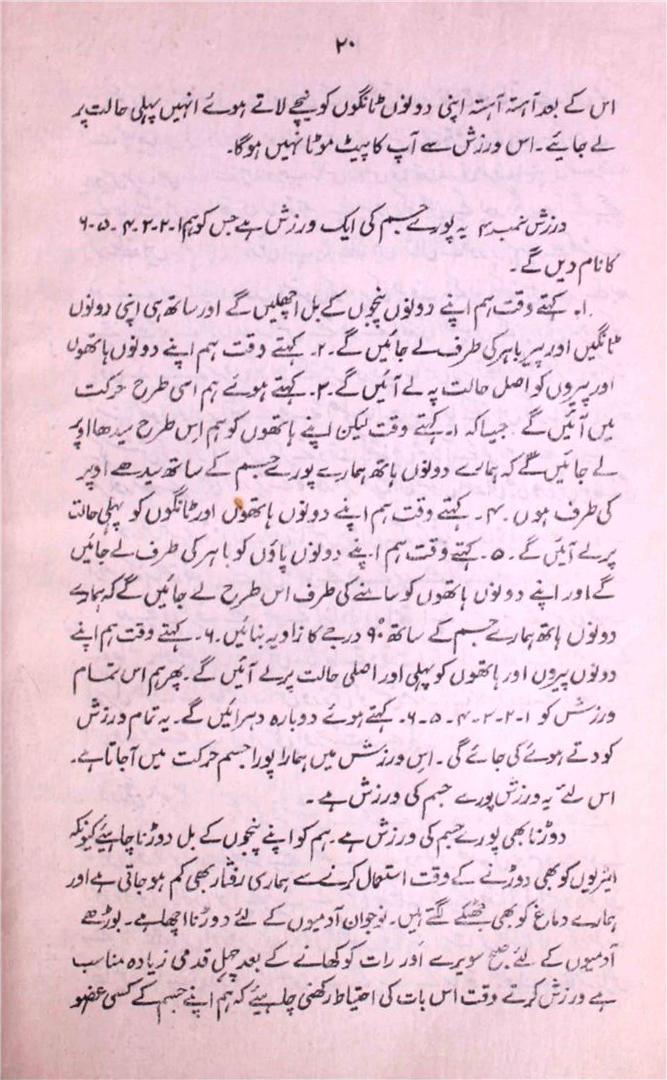 ۲۰
اس کے بعد آہستہ آہستہ اپنی دونوں ٹانگوں کو نیچے لاتے ہوئے انہیں پہلی حالت پر
لے جایئے۔ اس ورزش سے آپ کا پیٹ موٹا نہیں ہوگا۔
ورزش نمبر ۴ یہ پورے جسم کی ایک ورزش ہے جس کو ہم ۱۔۲۔۳۔۴۔۵۔۶
کا نام دیں گے۔
۱۔ کہتے وقت ہم اپنے دونوں پنجوں کے بل اچھلیں گے اور ساتھ ہی اپنی دونوں
ٹانگیں اور پیر باہر کی طرف لے جائیں گے۔ ۲۔ کہتے وقت ہم اپنے دونوں ہاتھوں
اور پیروں کو اصل حالت پہ لے آئیں گے۔ ۳۔ کہتے ہوئے ہم اسی طرح حرکت
میں آئیں گے جیسا کہ ۱۔ کہتے وقت لیکن اپنے ہاتھوں کو ہم اس طرح سیدھا اوپر
لے جائیں گے کہ ہمارے دونوں ہاتھ ہمارے پورے جسم کے ساتھ سیدھے اوپر
کی طرف ہوں۔ ۴۔ کہتے وقت ہم اپنے دونوں ہاتھوں اور ٹانگوں کو پہلی حالت
پر لے آئیں گے۔ ۵۔ کہتے وقت ہم اپنے دونوں پاؤں کو باہر کی طرف لے جائیں
گے اور اپنے دونوں ہاتھوں کو سامنے کی طرف اس طرح لے جائیں گے کہ ہمارے
دونوں ہاتھ ہمارے جسم کے ساتھ ۹۰° درجے کا زاویہ بنائیں۔ ۶۔ کہتے وقت ہم اپنے
دونوں پیروں اور ہاتھوں کو پہلی اور اصلی حالت پر لے آئیں گے۔ پھر ہم اس تمام
ورزش کو ۱۔۲۔۳۔۴۔۵۔۶۔ کہتے ہوئے دوبارہ دہرائیں گے۔ یہ تمام ورزش
کودتے ہوئے کی جائے گی۔ اس ورزش میں ہمارا پورا جسم حرکت میں آجاتا ہے۔
اس لئے یہ ورزش پورے جسم کی ورزش ہے۔
دوڑنا بھی پورے جسم کی ورزش ہے۔ ہم کو اپنے پنجوں کے بل دوڑنا چاہیئے کیونکہ
ایڑیوں کو بھی دوڑنے کے وقت استعمال کرنے سے ہماری رفتار بھی کم ہو جاتی ہے اور
ہمارے دماغ کو بھی جھٹکے لگتے ہیں۔ نوجوان آدمیوں کے لئے دوڑنا اچھا ہے۔ بوڑھے
آدمیوں کے لئے صبح سویرے اور رات کو کھانے کے بعد چہل قدمی زیادہ مناسب
ہے ورزش کرتے وقت اس بات کی احتیاط رکھنی چاہیئے کہ ہم اپنے جسم کے کسی عضو